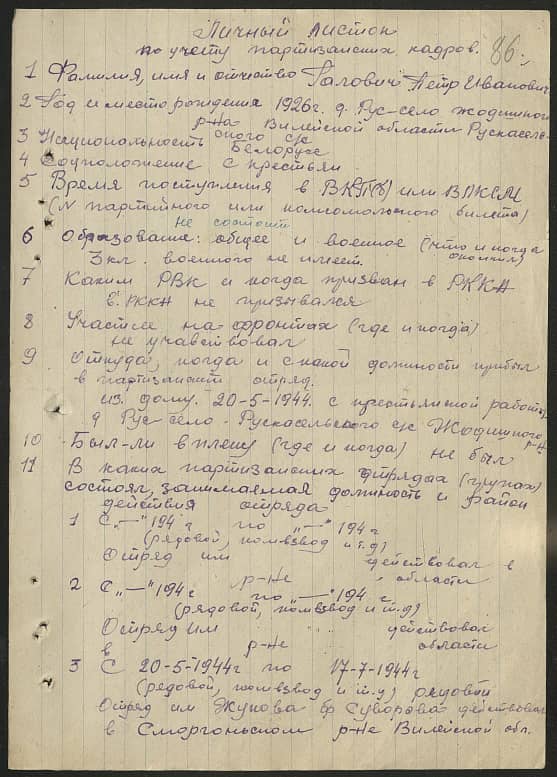 Личный листок
по учету партизанских кадров. 86.
1 Фамилия, имя и отчество Галович Петр Иванович
2 Год и место рождения 1926г. д. Рус-село Жодишкого
р-на Вилейской области Рускасель-
3 Национальность ского с/с
Белорусс
4 Соцположение с крестьян
5 Время поступления в ВКП(б) или ВЛКСМ
(N партийного или комсомольского билета)
не состоит
6 Образование: общее и военное (что и когда
окончил)
3кл. военного не имеет.
7 Каким РВК и когда призван в РККА
в РККА не призывался
8 Участие на фронтах (где и когда)
не учавствовал
9 Откуда, когда и с какой должности прибыл
в партизанский отряд.
из дому. 20-5-1944. с крестьянской работы
д Рус село. Рускасельского с/с Жодишкого
р-н
10 Был-ли в плену (где и когда) не был
11 В каких партизанских отрядах (группах)
состоял, занимаемая должность и район
действия отряда
1 С „—" 194 г по „—" 194 г
(рядовой, помвзвод и т.д)
Отряд им действовал в
р-не области
2 С „—" 194г по „—" 194 г.
(рядовой, помвзвод и т.д)
Отряд им действовал
в р-не области
3 С 20-5-1944г по 17-7-1944г
(рядовой, помвзвод и т.д) рядовой
Отряд им Жукова бр Суворова действовал
в Сморгоньском р-не Вилейской обл.